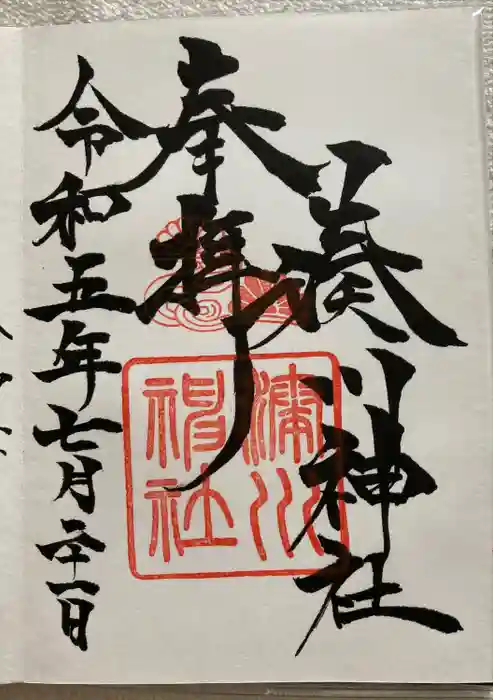 湊川神社
奉拝
令和五年七月二十一日
湊川
神社